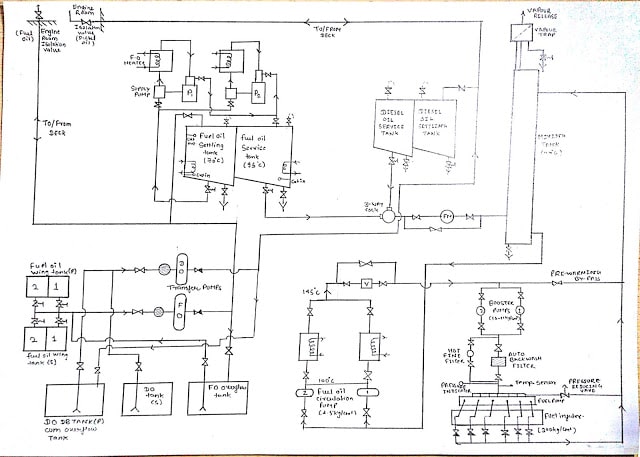 (Fuel oil)
Engine
Room
Isolation
Valve
Engine
Room
Isolation
valve
(Diesel
oil)
To/From
Deck
VAPOUR
RELEASE
VAPOUR
TRAP
F.O
HEATER
SUPPLY
PUMP
P1
P2
To/From
Deck
Fuel oil
Settling
tank
Fuel oil
Service
tank
DIESEL
OIL
SERVICE
TANK
DIESEL
OIL
SETTLING
TANK
MIXING
TANK
3-WAY
COCK
Fm
Fuel oil
wing tank(P)
2 1
2 1
fuel oil wing
tank (S)
DO
Transfer Pumps
FO
DO DB TANK(P)
cum overflow
tank
DO
tank
(S)
FO overflow
tank
V
100°C
2
1
Fuel oil
circulation
Pump
PRE-WARMING
BY-PASS
BOOSTER
PUMPS
2
1
HOT
FINE
FILTER
AUTO
BACKWASH
FILTER
Temp. sensor
PRESSURE
INDICATOR
PRESSURE
REDUCING
VALVE
Fuel Pump